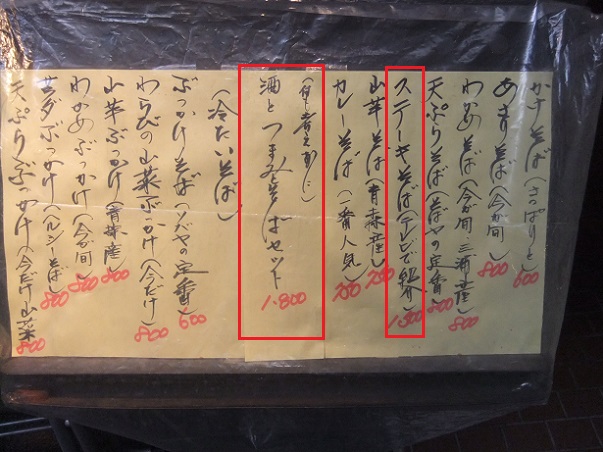 かけそば(さっぱりと) 600
あさりそば(今が旬) 800
わかめそば(今が旬 三浦産) 800
天ぷらそば(そばやの定番) 800
ステーキそば(テレビで紹介) 1,500
山芋そば(青森産) 750
カレーそば(一番人気) 750
酒とつまみそばセット 1,800
(冷たいそば)
ぶっかけそば(ソバヤの定番) 600
わらびの山菜ぶっかけ(今だけ) 800
山芋ぶっかけ(青森産) 800
わかめぶっかけ(今が旬) 800
サラダぶっかけ(ヘルシーそば) 800
天ぷらぶっかけ(今だけ山菜) 800